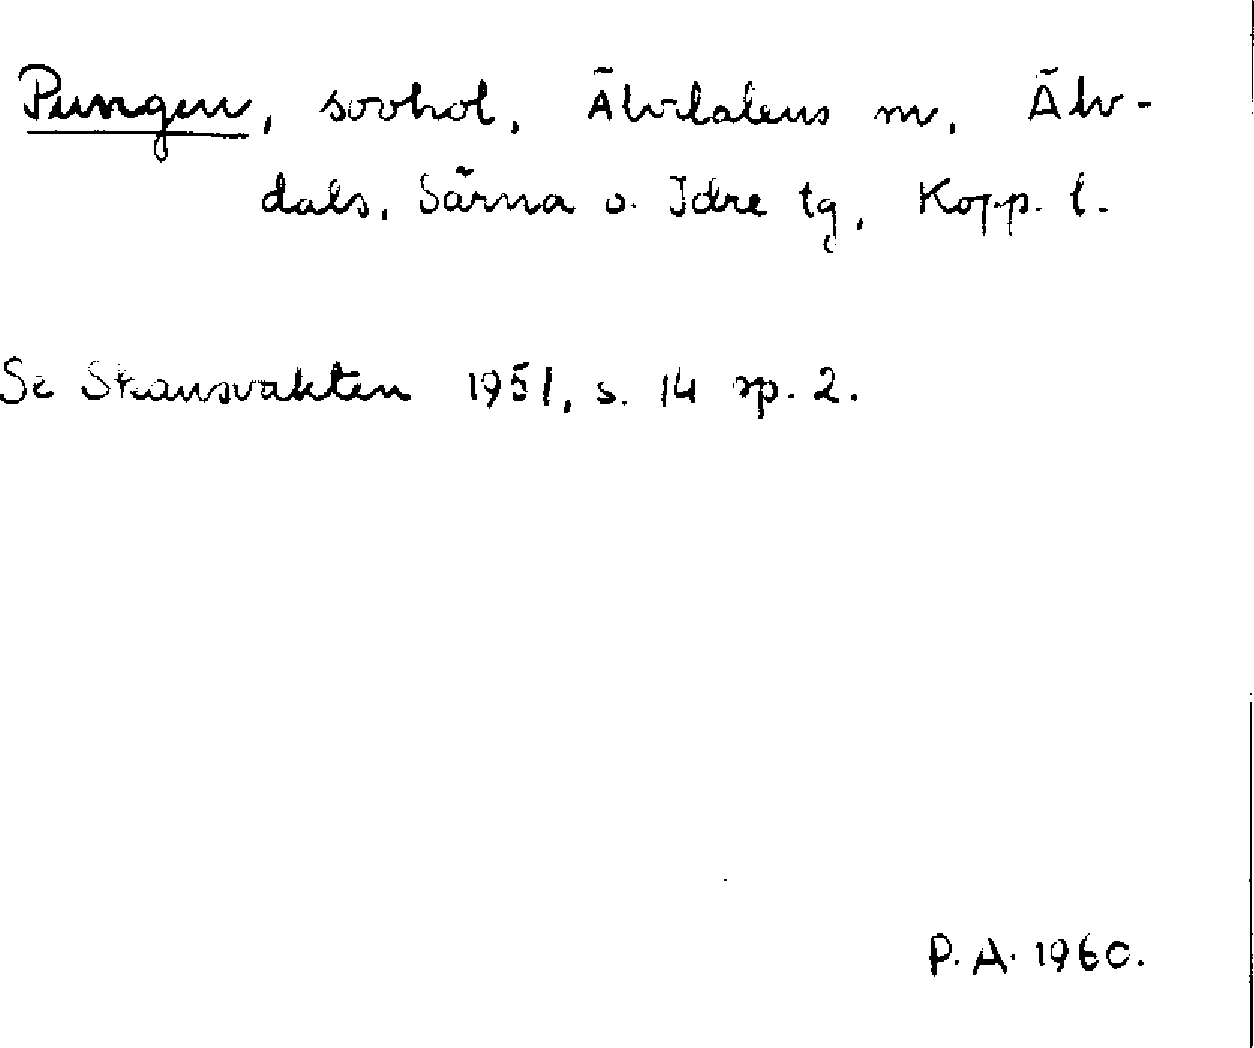 Pungen, sovhol, Älvdalens m, Älv-
dals, Särna o. Idre tg, Kopp. l.
Se Skansvakten 1951, s. 14 sp. 2.
P. A. 1960.